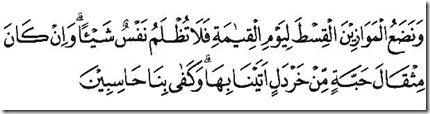 وَنَضَعُ الْمَوَازِيْنَ الْقِسْطَ لِيَوْمِ الْقِيٰمَةِ فَلَا تُظْلَمُ نَفْسٌ شَيْـًٔاۗ وَاِنْ كَانَ
مِثْقَالَ حَبَّةٍ مِّنْ خَرْدَلٍ اَتَيْنَا بِهَاۗ وَكَفٰى بِنَا حَاسِبِيْنَ